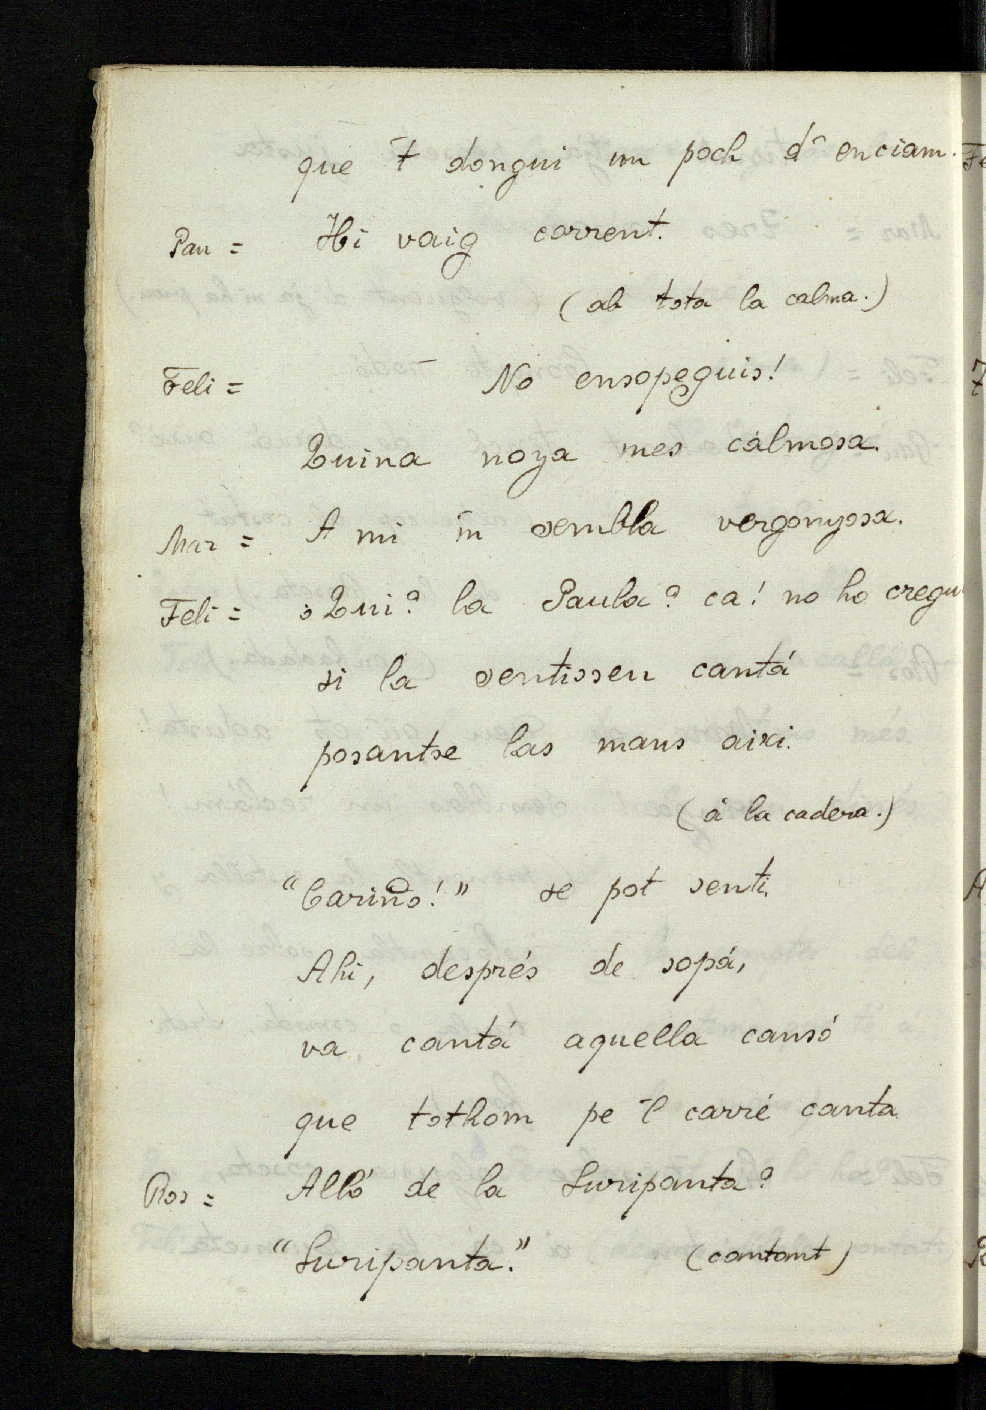 que 't dongui un poch d' enciam.
Pau = Hi vaig corrent.
(ab tota la calma.)
Feli = No ensopeguis!
Quina noya mes calmosa.
Mar = A mi 'm sembla vergonyosa.
Feli = ¿Qui? la Paula? ca! no ho cregu
si la sentisseu cantá
posantse las mans aixi.
(á la cadera.)
"Cariño!" se pot senti.
Ahi, després de sopá,
va cantá aquella cansó
que tothom pe 'l carré canta
Ros = Alló de la Suripanta?
"Suripanta." (cantant)